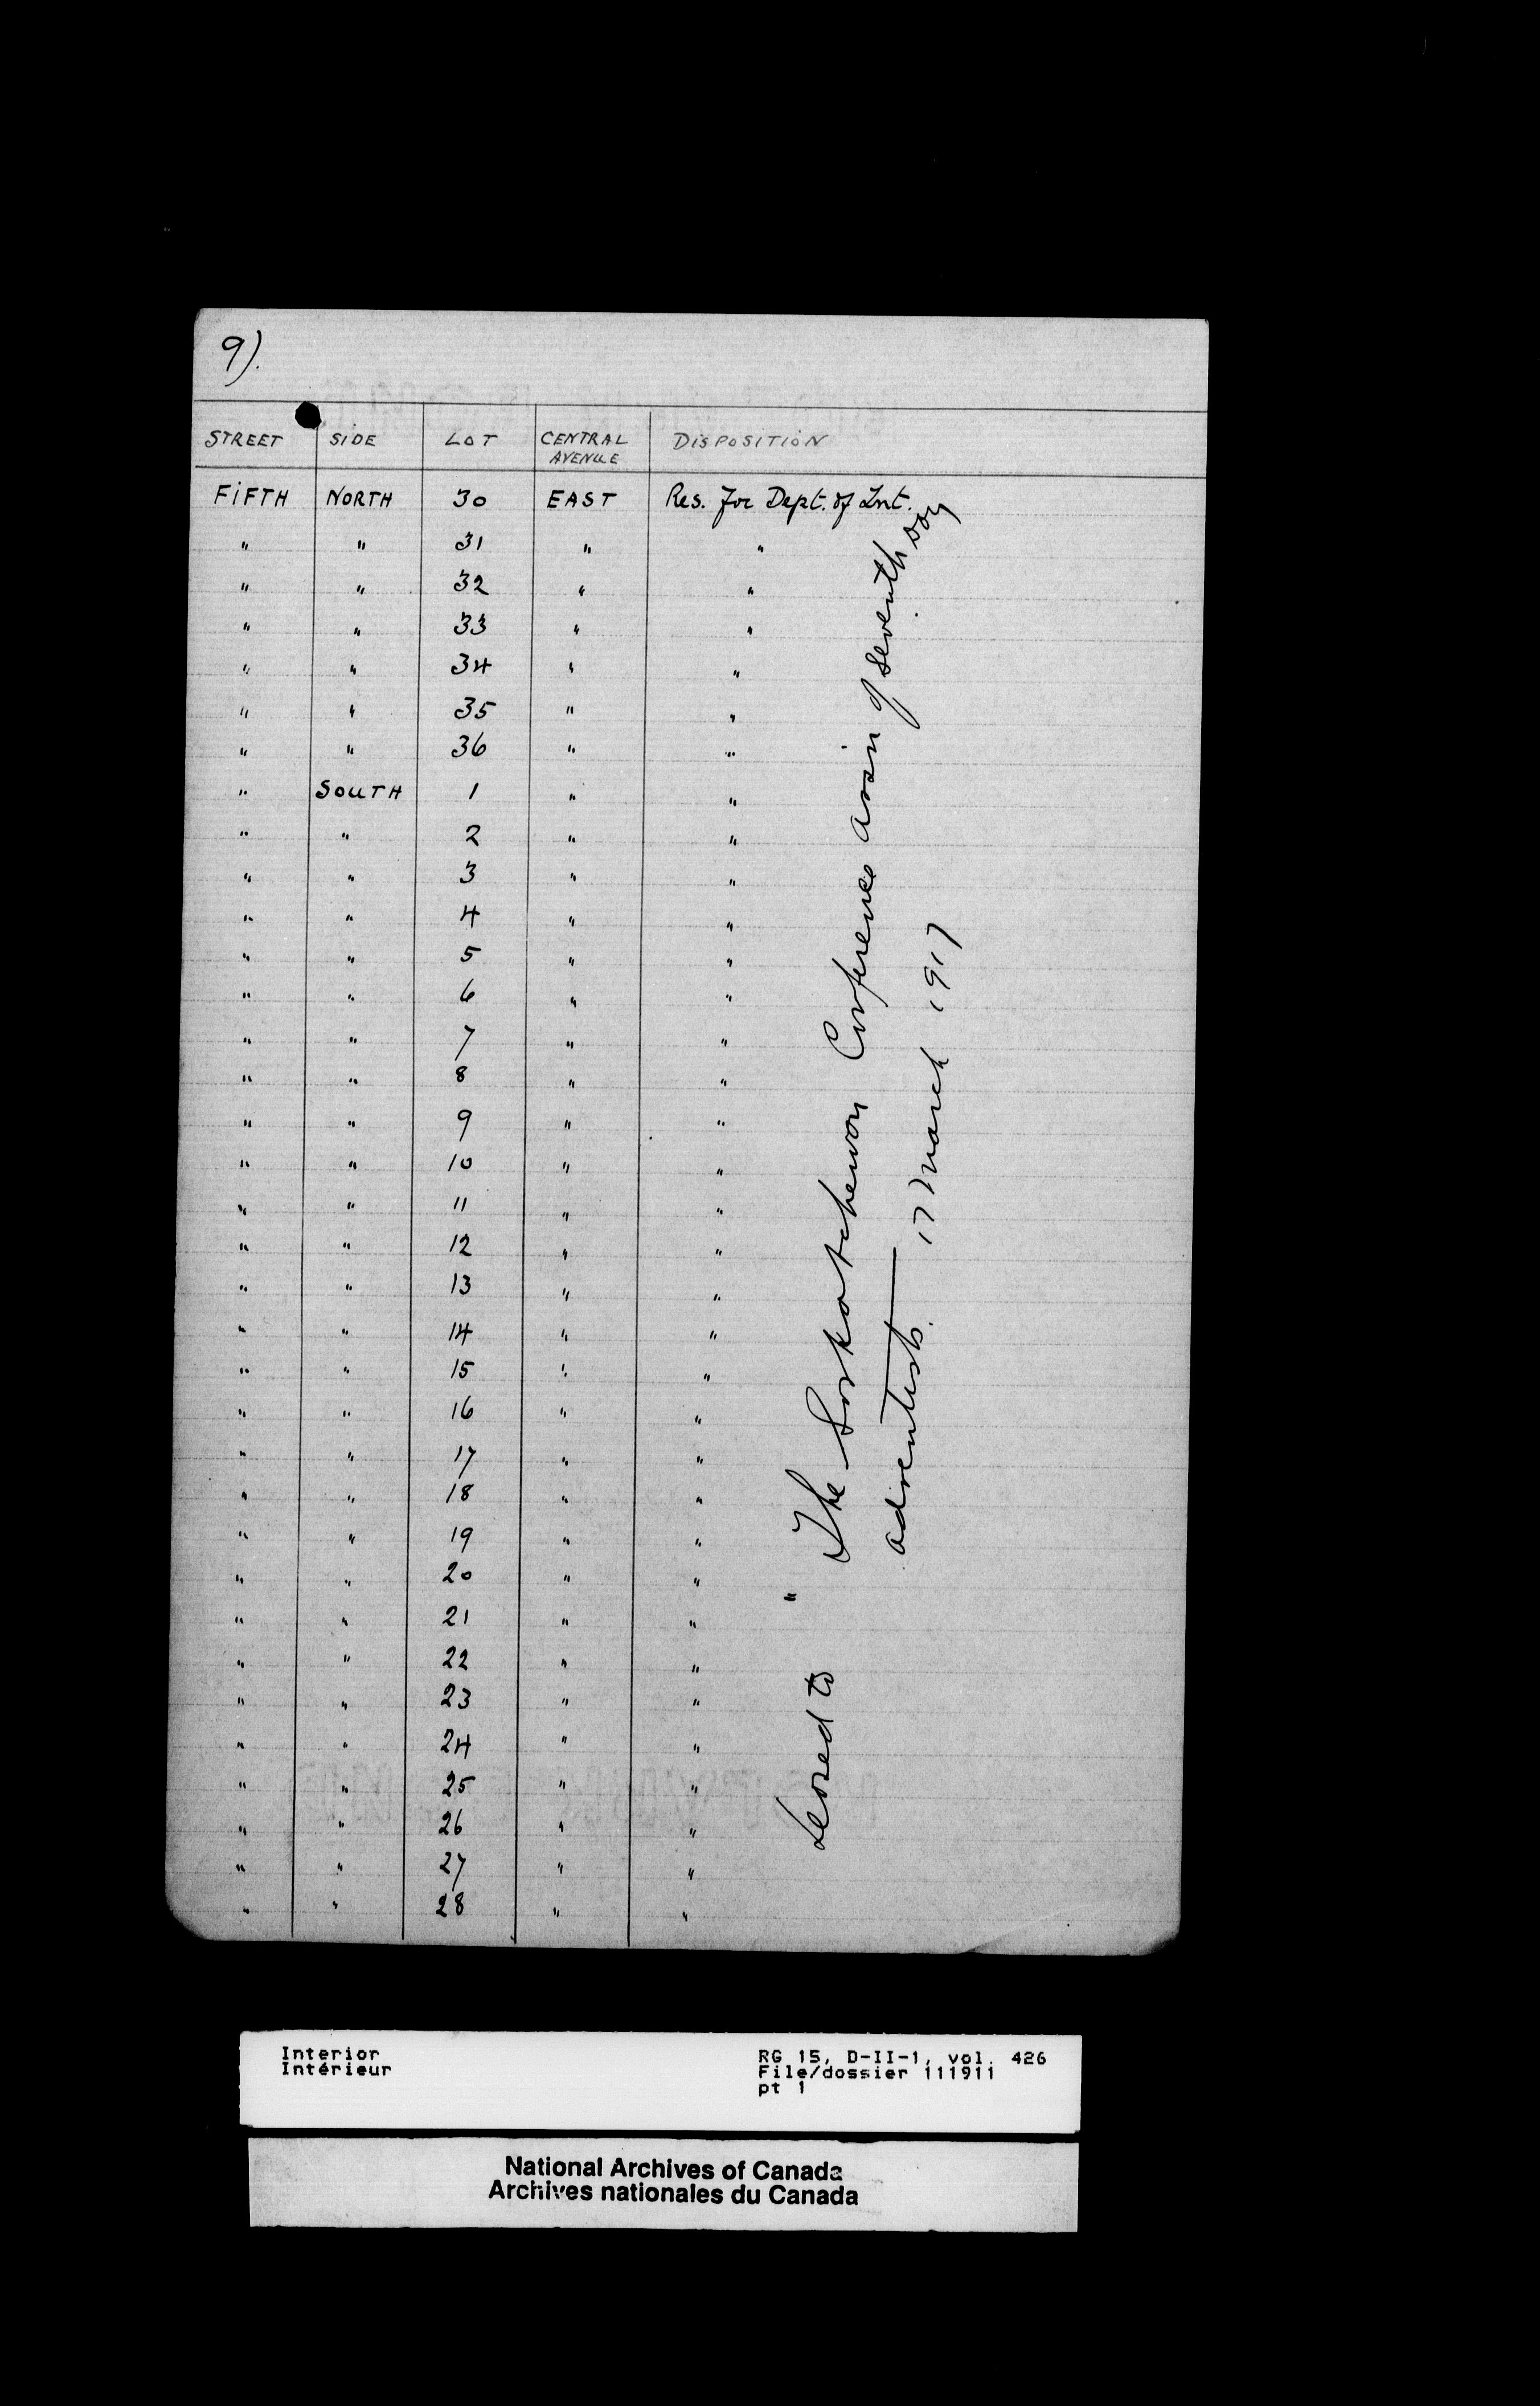 9).
STREET SIDE LOT CENTRAL AVENUE DISPOSITION
FIFTH NORTH 30 EAST Res. for Dept. of Int.
" " 31 " "
" " 32 " "
" " 33 " "
" " 34 " "
" " 35 " "
" " 36 " "
" SOUTH 1 " "
" " 2 " "
" " 3 " "
" " 4 " "
" " 5 " "
" " 6 " "
" " 7 " "
" " 8 " "
" " 9 " "
" " 10 " "
" " 11 " "
" " 12 " "
" " 13 " "
" " 14 " "
" " 15 " "
" " 16 " "
" " 17 " "
" " 18 " "
" " 19 " "
" " 20 " "
" " 21 " "
" " 22 " "
" " 23 " "
" " 24 " "
" " 25 " "
" " 26 " "
" " 27 " "
" " 28 " "
Leased to " The Saskatchewan Conference assn of Seventh Day
adventists. — 17 March 1917
Interior
Intérieur
RG 15, D-II-1, vol. 426
File/dossier 111911
pt 1
National Archives of Canada
Archives nationales du Canada